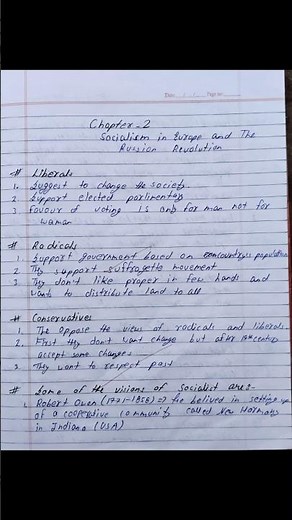 Date Page No.
Chapter-2
Socialism in Europe and The
Russion Revolution
# Liberals
1. Suggest to change the society.
2. Support elected parlimentey
3. Favour of voting is only for man not for
woman
# Radicals
1. Support government based on country's population
2. They support suffragette movement
3. They don't like proper in few hands and
want to distribute land to all.
# Conservatives
1. The oppose the views of radicals and liberals.
2. First they don't want change but after 18th century
accept some changes
3. They want to respect past
# Some of the visions of socialist are:-
1. Robert Owen (1771-1858) => He belived in setting up
of a cooperative community called New Harmony
in Indiana (USA)